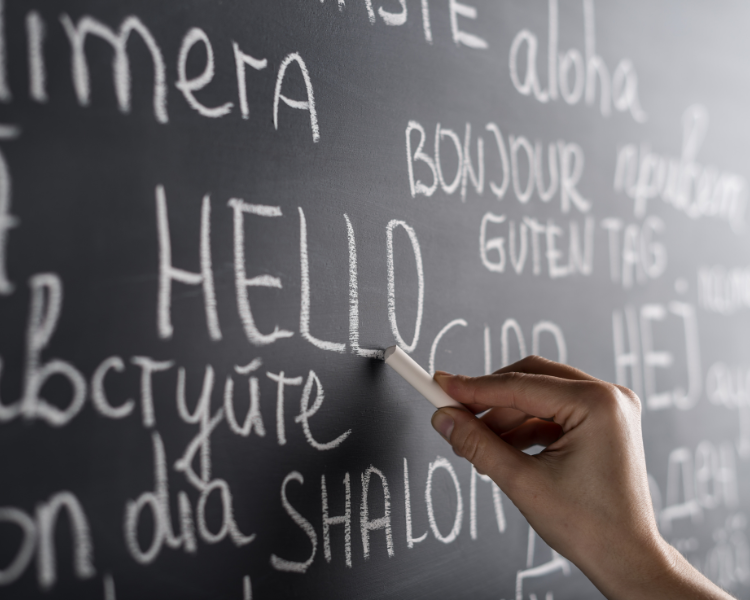 STE
imerA
aloha
BONJOUR
привет
HELLO
GUTEN TAG
CIAO
HEJ
встуйте
on dia
SHALOM